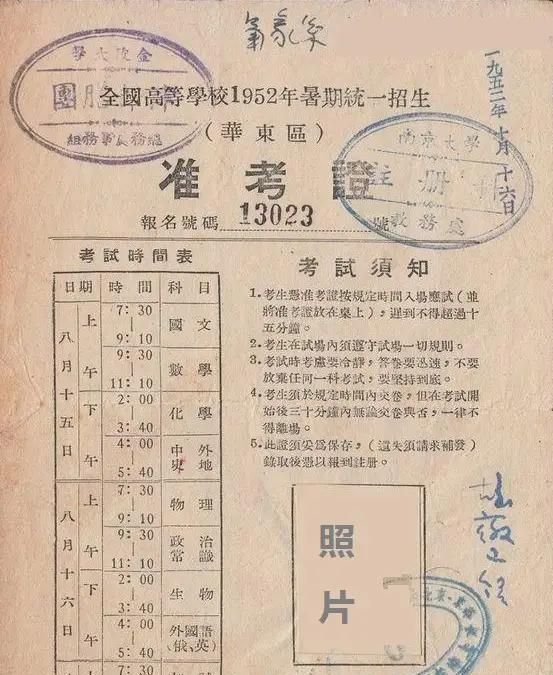 氣象系
一九五二年十月十六日
金陵大學
團
總務處事務組
全國高等學校1952年暑期統一招生
(華東區)
南京大學
註冊
教務處
准考證
報名號碼 13023 號
考試時間表
日期 時間 科目
八月十五日 上午 7:30 9:10 國文
9:30 11:10 數學
下午 2:00 3:40 化學
4:00 5:40 中外史地
八月十六日 上午 7:30 9:10 物理
9:30 11:10 政治常識
下午 2:00 3:40 生物
4:00 5:40 外國語(俄、英)
7:30
考試須知
1.考生憑准考證按規定時間入場應試(並
將准考證放在桌上),遲到不得超過十
五分鐘。
2.考生在試場內須遵守試場一切規則。
3.考試時考慮要冷靜,答卷要迅速,不要
放棄任何一科考試,要堅持到底。
4.考生須於規定時間內交卷,但在考試開
始後三十分鐘內無論交卷與否,一律不
得離場。
5.此證須妥爲保存,(遺失須請求補發)
錄取後憑以報到註冊。
照片